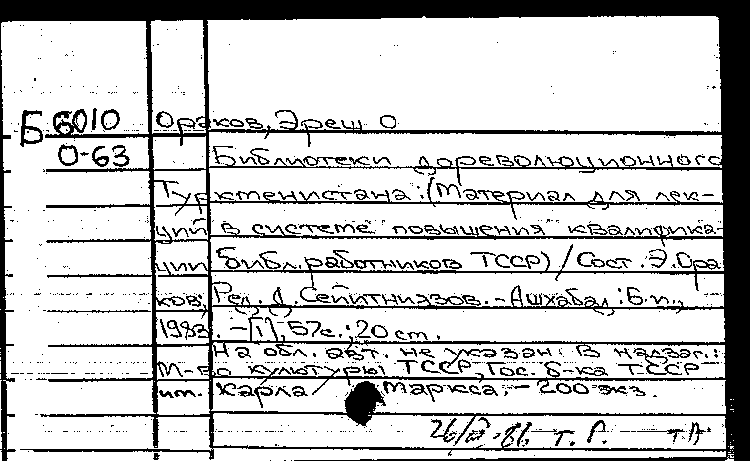 Б 6010
О-63
Ораков, Эреш О
Библиотеки дореволюционного
Туркменистана: (Материал для лек-
ций в системе повышения квалифика-
ции библ. работников ТССР) / Сост. Э. Ора
ков; Ред. Д. Сейитниязов. - Ашхабад: Б.и.,
1983. - [1], 57с.; 20 cm.
На обл. авт. не указан. В надзаг.:
М-во культуры ТССР, Гос. б-ка ТССР
им. Карла Маркса. - 200 экз.
т. Г.